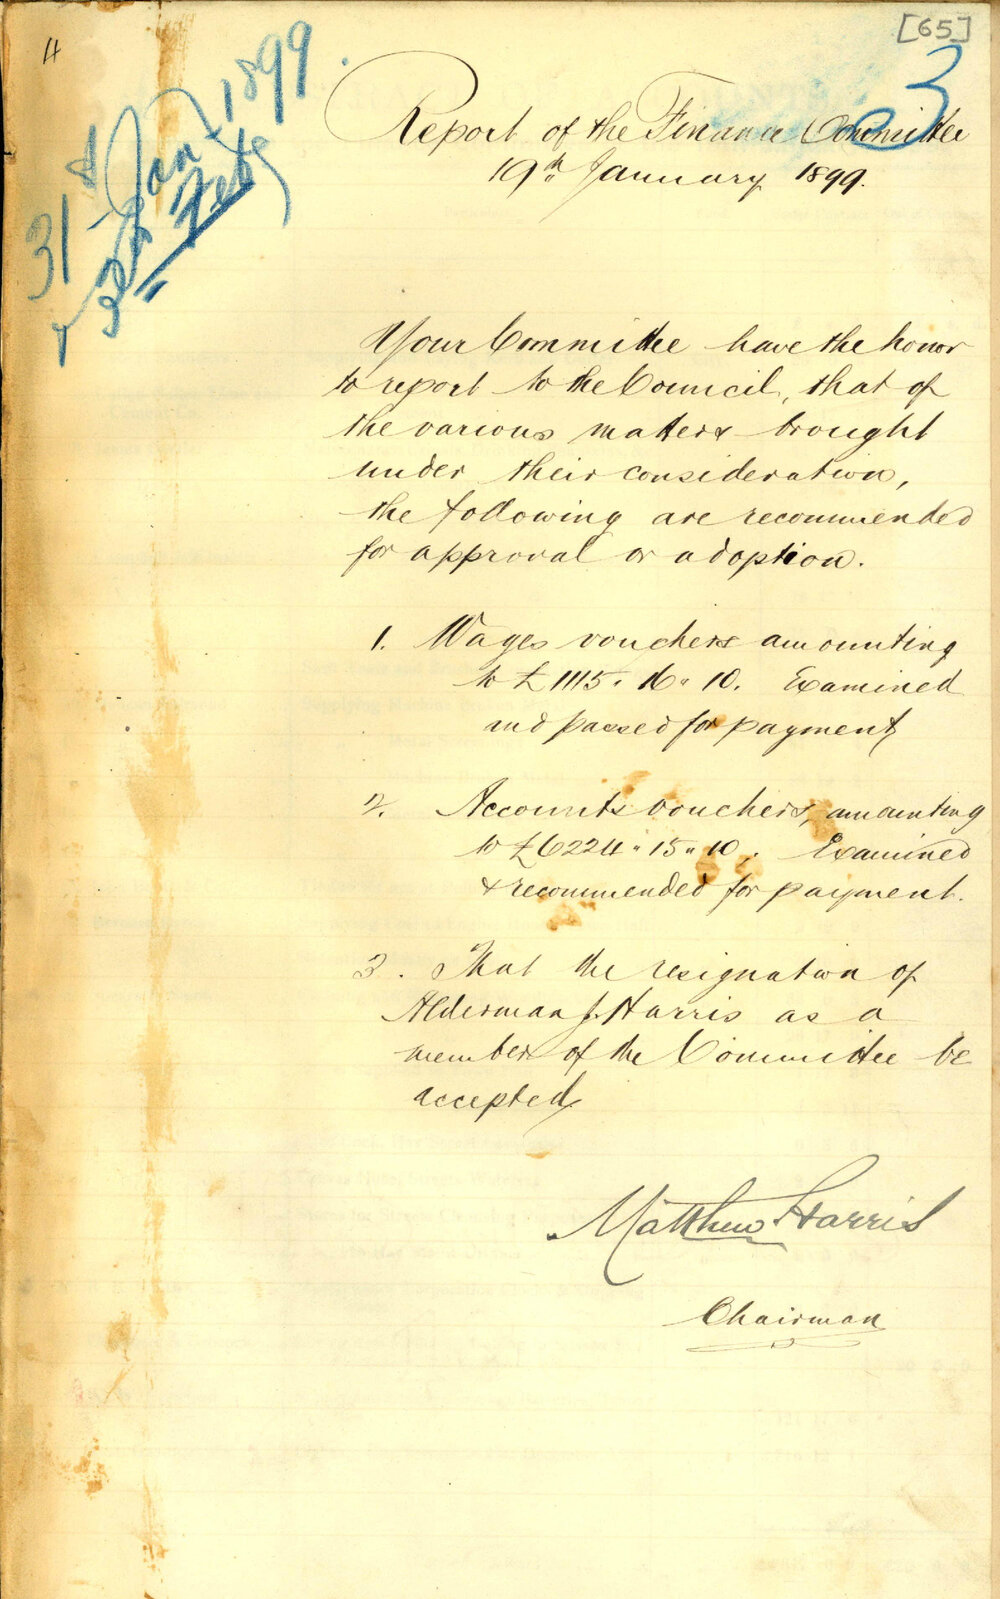 4
[65]
3
31st Jan 1899
Feby
Report of the Finance Committee
19th January 1899.
Your Committee have the honor
to report to the Council, that of
the various matters brought
under their consideration,
the following are recommended
for approval or adoption.
1. Wages vouchers amounting
to £1115" 16" 10. Examined
and passed for payment
2. Accounts vouchers, amounting
to £6224" 15" 10. Examined
& recommended for payment.
3. That the resignation of
Alderman J. Harris as a
member of the Committee be
accepted
Matthew Harris
Chairman